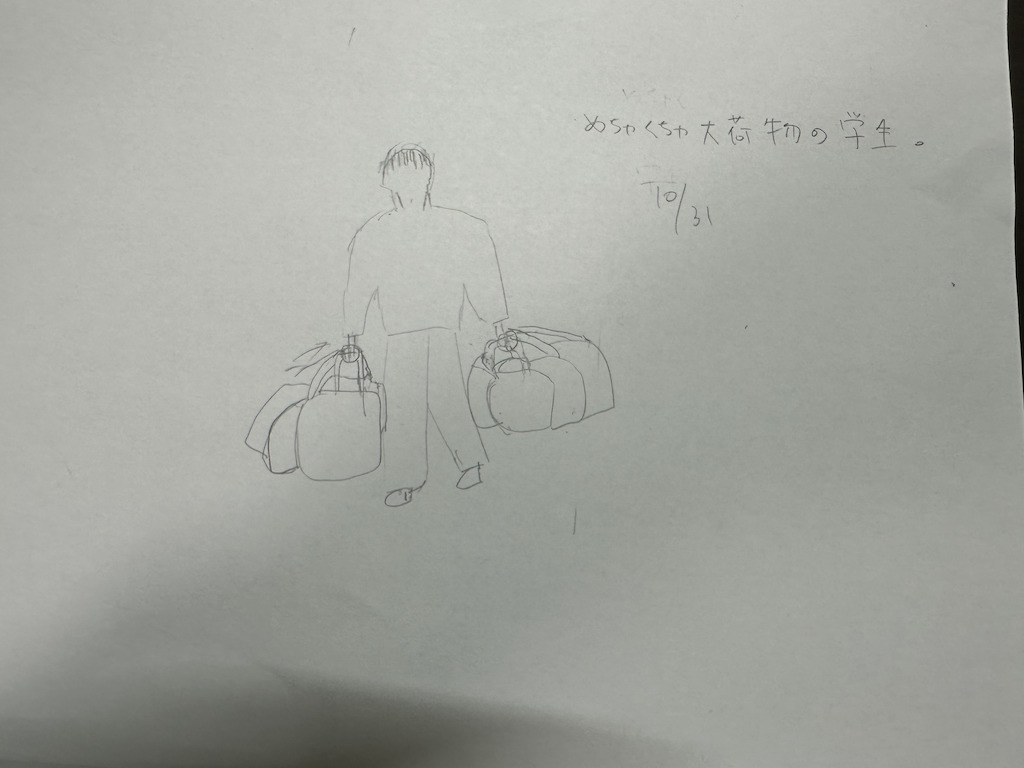 めちゃくちゃ大荷物の学生。
10/31